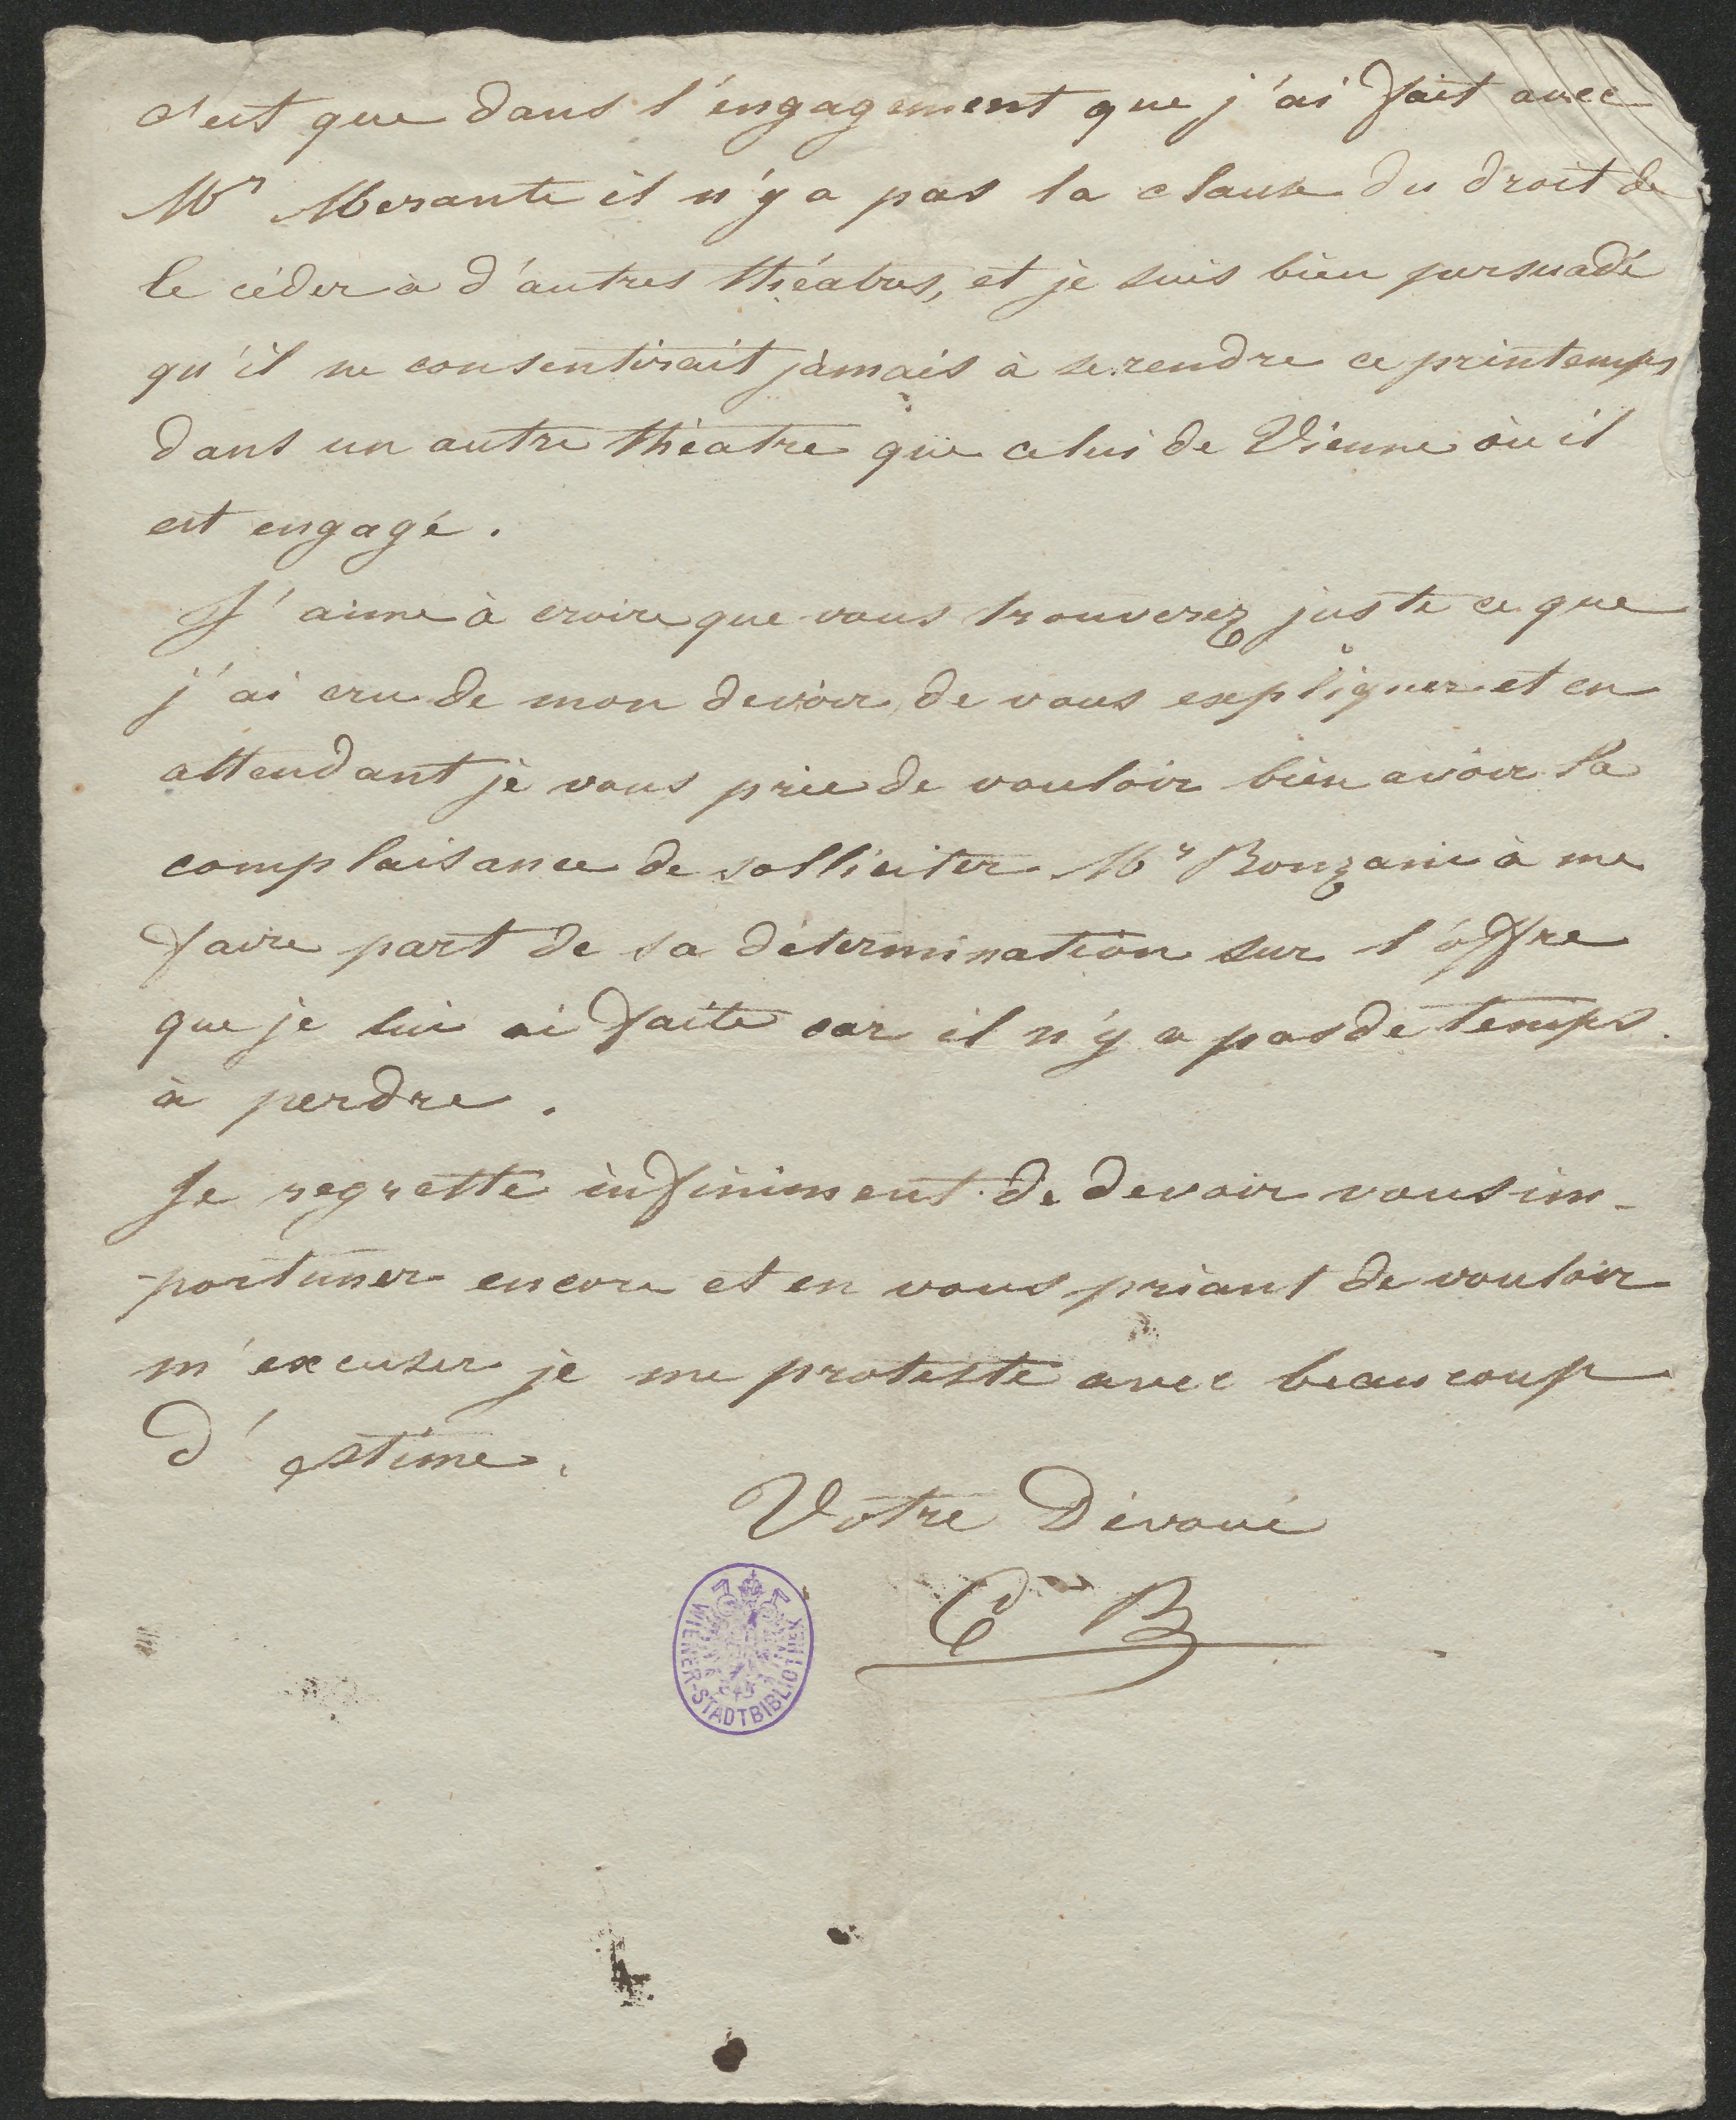 c'est que dans l'engagement que j'ai fait avec
Mr Merante il n'y a pas la clause du droit de
le céder à d'autres théatres, et je suis bien persuadé
qu'il ne consentirait jamais à se rendre ce printemps
dans un autre théatre que celui de Vienne où il
est engagé.
J'aime à croire que vous trouverez juste ce que
j'ai cru de mon devoir de vous expliquer et en
attendant je vous prie de vouloir bien avoir la
complaisance de solliciter Mr Bonzani à me
faire part de sa détermination sur l'offre
que je lui ai faite car il n'y a pas de temps
à perdre.
Je regrette infiniment de devoir vous im-
-portuner encore et en vous priant de vouloir
m'excuser je me proteste avec beaucoup
d'estime.
Votre Dévoué
B
WIENER-STADTBIBLIOTHEK